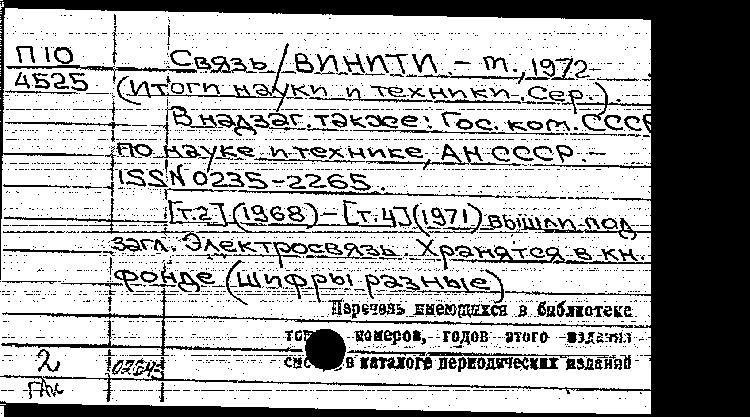 П10
4525
Связь / ВИНИТИ. – М., 1972–
(Итоги науки и техники. Сер.).
В надзаг. также: Гос. ком. СССР
по науке и технике, АН СССР. –
ISSN 0235-2265.
[Т.2] (1968) – [Т.4] (1971) вышли под
загл. Электросвязь. Хранятся в кн.
фонде (шифры разные)
Перечень имеющихся в библиотеке
номеров, годов этого издания
в каталоге периодических изданий
2